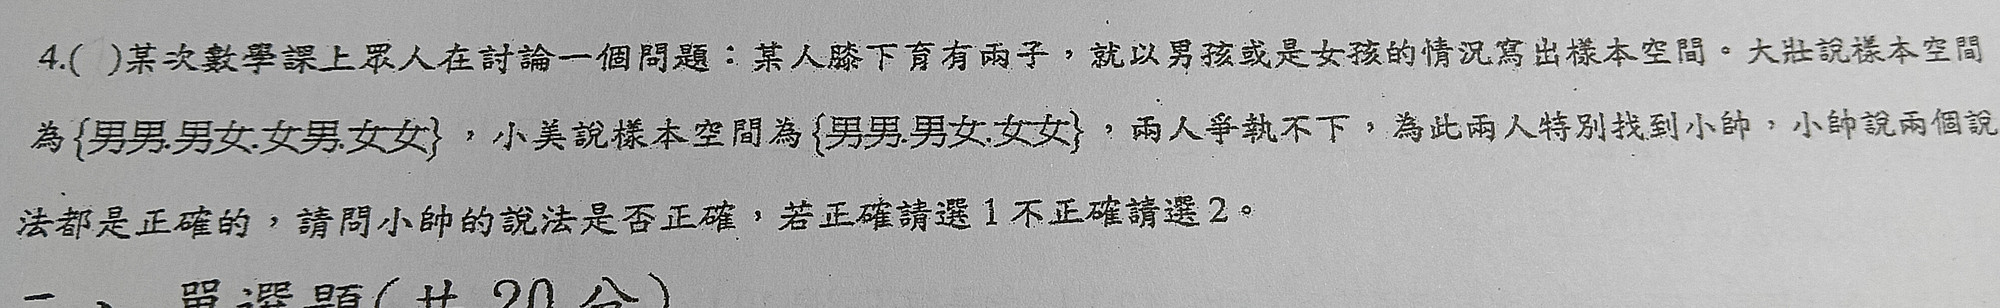 4.( )某次數學課上眾人在討論一個問題：某人膝下育有兩子，就以男孩或是女孩的情況寫出樣本空間。大壯說樣本空間
為{男男.男女.女男.女女}，小美說樣本空間為{男男.男女.女女}，兩人爭執不下，為此兩人特別找到小帥，小帥說兩個說
法都是正確的，請問小帥的說法是否正確，若正確請選1不正確請選2。
二、單選題(共20分)